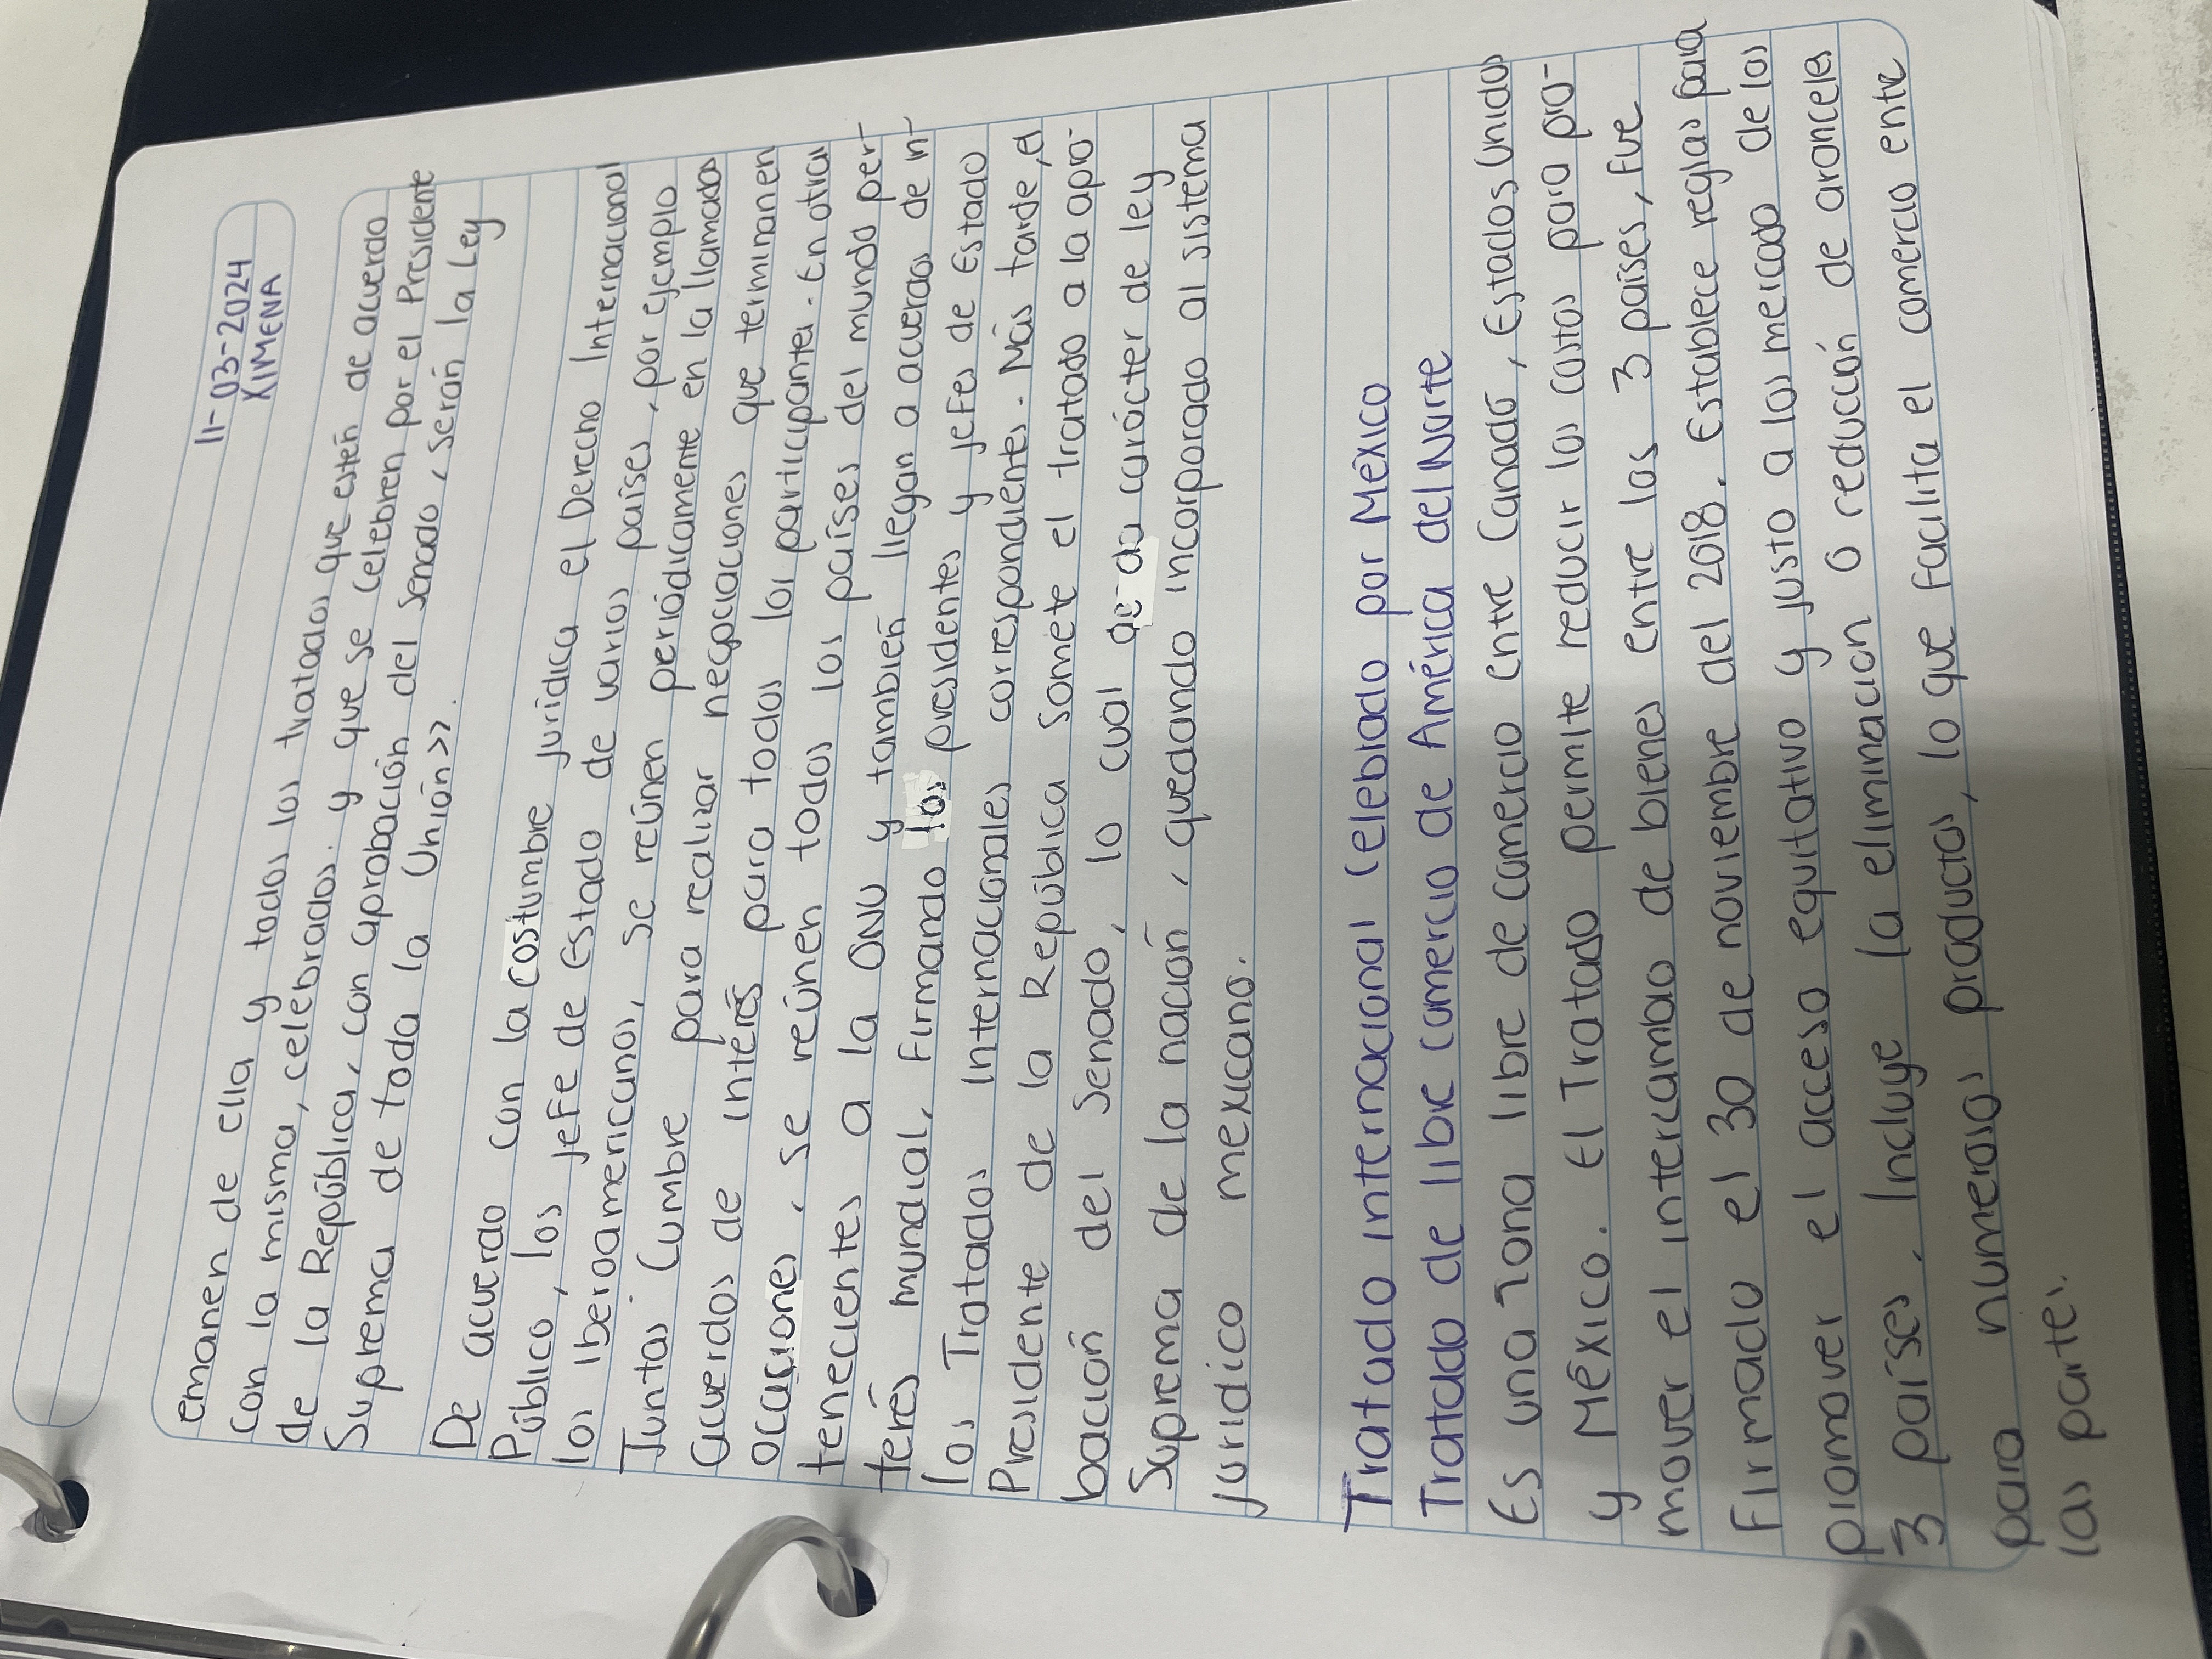 11-03-2024
XIMENA
emanen de ella y todos los tratados que estén de acuerdo
con la misma, celebrados. y que se celebren por el Presidente
de la República, con aprobación del Senado, serán la Ley
Suprema de toda la Unión>>.
De acuerdo con la costumbre jurídica el Derecho Internacional
Público, los jefe de Estado de varios países, por ejemplo
los Iberoamericanos, se reúnen periódicamente en la llamadas
Juntas Cumbre para realizar negociaciones que terminan en
acuerdos de interés para todos los participantes. En otras
ocaciones, se reúnen todos los países del mundo per-
tenecientes a la ONU y también llegan a acuerdos de in-
terés mundial, Firmando los presidentes y jefes de Estado
los Tratados Internacionales correspondientes. Más tarde, el
Presidente de la República somete el tratado a la apro-
bación del Senado, lo cual da carácter de ley
Suprema de la nación, quedando incorporado al sistema
jurídico mexicano.
Tratado internacional celebrado por México
Tratado de libre comercio de América del Norte
Es una zona libre de comercio entre Canadá, Estados Unidos
y México. El Tratado permite reducir los costos para pro-
mover el intercambio de bienes entre los 3 países, fue
Firmado el 30 de noviembre del 2018. Establece reglas para
promover el acceso equitativo y justo a los mercado de los
3 países. Incluye la eliminacion o reducción de aranceles
para numerosos productos, lo que facilita el comercio entre
las partes.